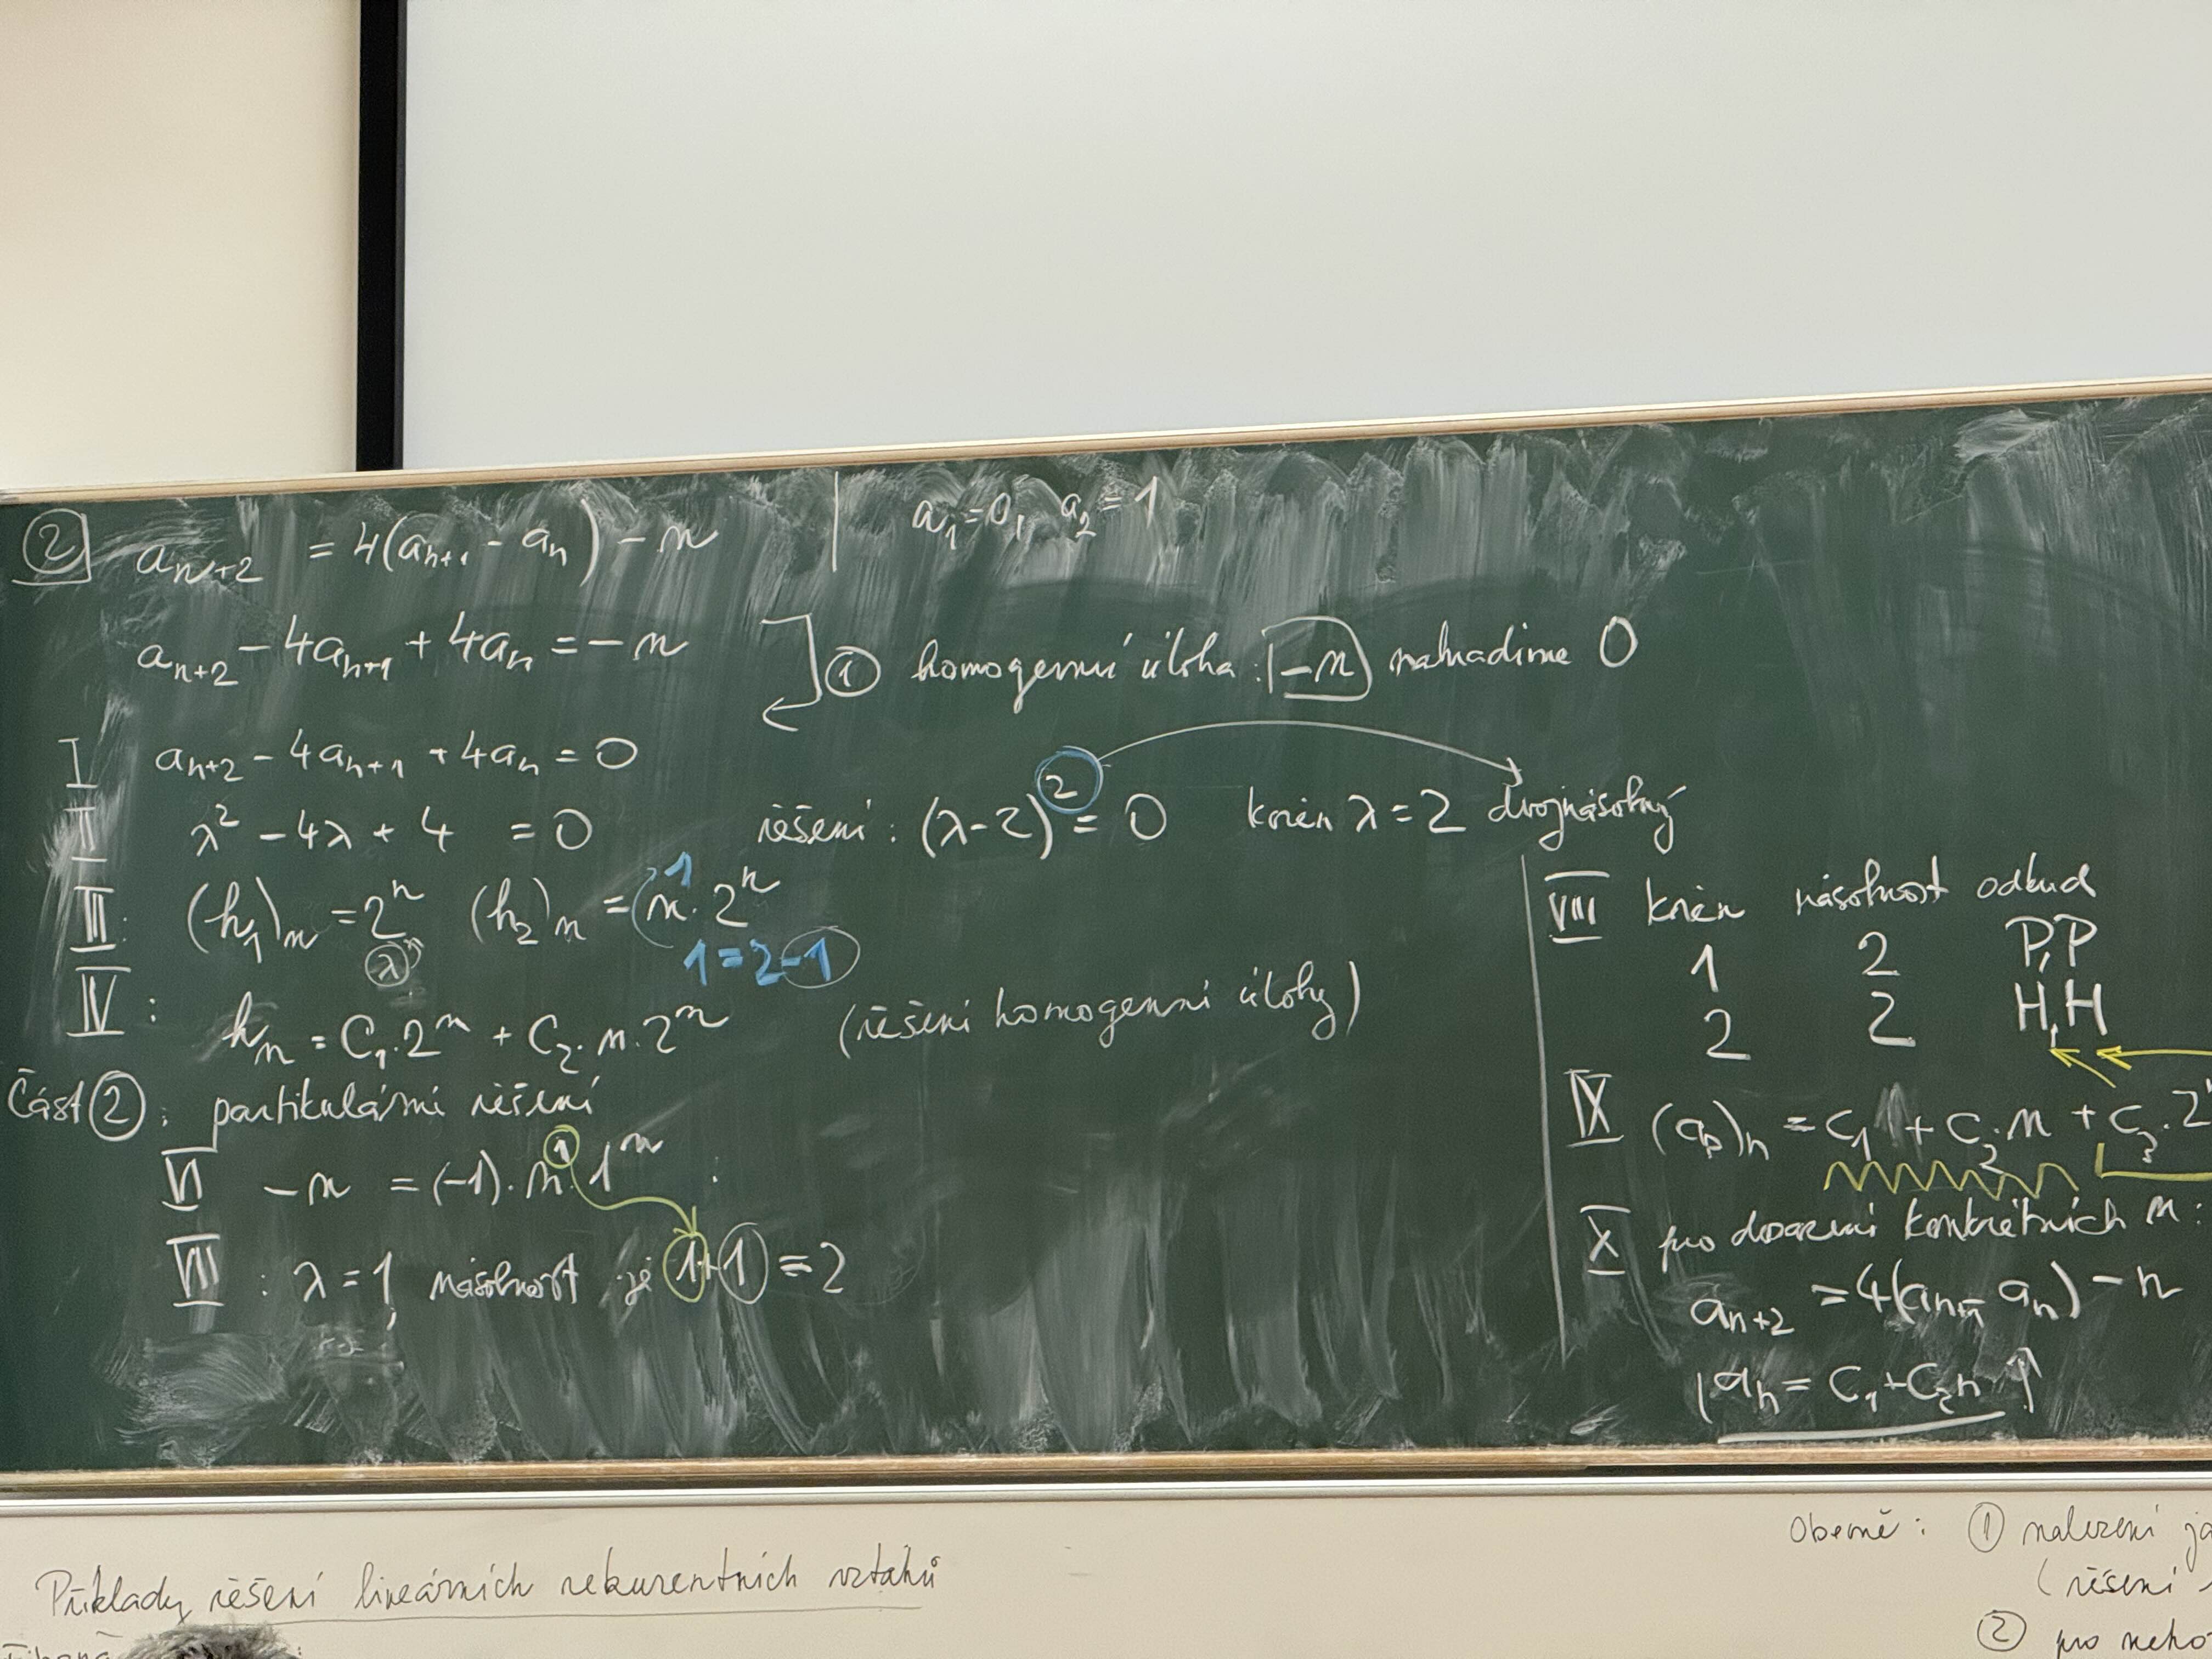 ② a_{n+2} = 4(a_{n+1} - a_n) - n | a_1 = 0, a_2 = 1
a_{n+2} - 4a_{n+1} + 4a_n = -n ① homogenní úloha: -n nahradíme 0
I a_{n+2} - 4a_{n+1} + 4a_n = 0
II λ² - 4λ + 4 = 0 řešení: (λ-2)² = 0 kořen λ = 2 dvojnásobný
III: (h_1)_n = 2^n (h_2)_n = n^1 · 2^n
λ 1 = 2-1
IV: h_n = C_1·2^n + C_2·n·2^n (řešení homogenní úlohy)
Část ②: partikulární řešení
VI -n = (-1)·n^1·1^n
VII: λ = 1, násobnost je 1+1 = 2
VIII kořen násobnost odkud
1 2 P,P
2 2 H,H
IX (a_p)_n = C_1 1 + C_2·n + C_3·2
X pro dosazení konkrétních n:
a_{n+2} = 4(a_{n+1} - a_n) - n
a_n = C_1 + C_2 n
Příklady řešení lineárních rekurentních vztahů
Obecně: ① nalezení
(řešení
② pro